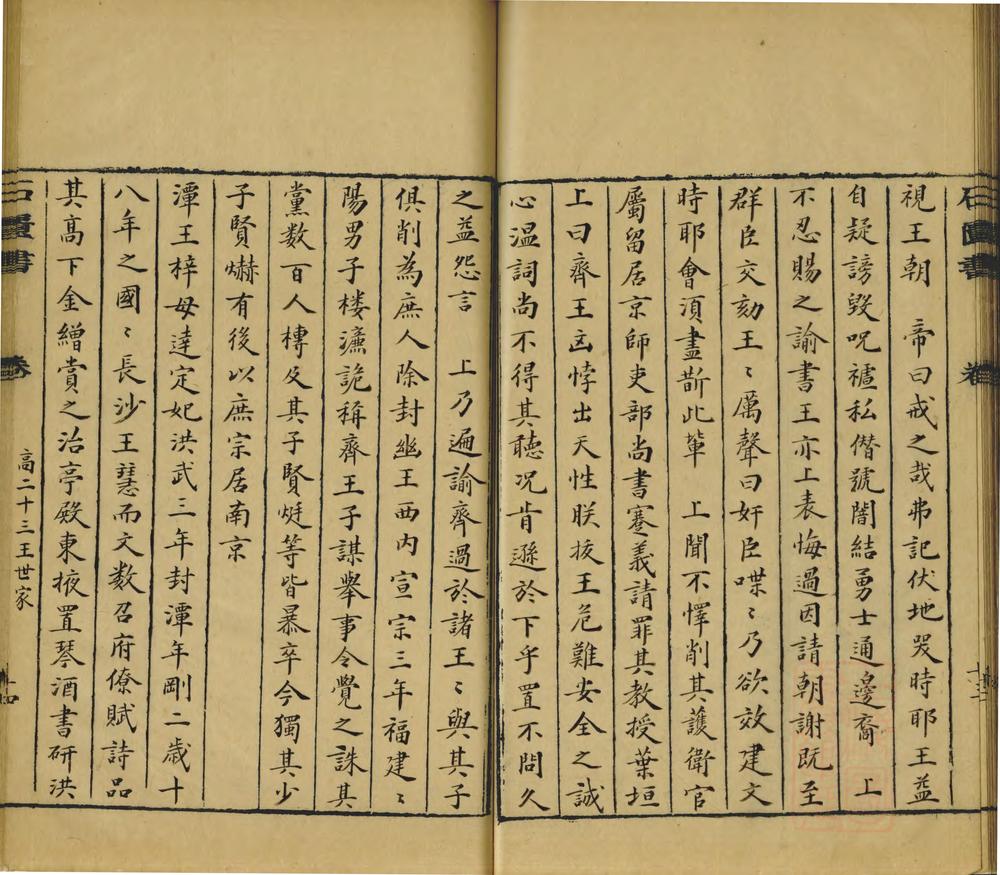 石匱書
卷
十三
視王朝　帝曰戒之哉弗記伏地哭時耶王益
自疑謗毀呪禮私僣號闇結勇士通邊裔　上
不忍賜之諭書王亦上表悔過因請朝謝既至
群臣交劾王〻厲聲曰奸臣喋〻乃欲效建文
時耶會湏盡斬此輩　上聞不懌削其護衛官
屬留居京師吏部尚書蹇義請罪其教授葉垣
上曰齊王凶悖出天性朕拔王危難安全之誠
心温詞尚不得其聽况肯遜於下乎置不問久
之益怨言　上乃遍諭齊過於諸王〻與其子
俱削為庶人除封幽王西内宣宗三年福建〻
陽男子楼濂詭稱齊王子謀舉事令覺之誅其
黨数百人槫及其子賢烶等皆暴卒今獨其少
子賢爀有後以庶宗居南京
潭王梓母達定妃洪武三年封潭年剛二歳十
八年之國〻長沙王慧而文数召府僚賦詩品
其高下金繒賞之治亭殿東掖置琴酒書研洪
石匱書
卷
高二十三王世家
十四